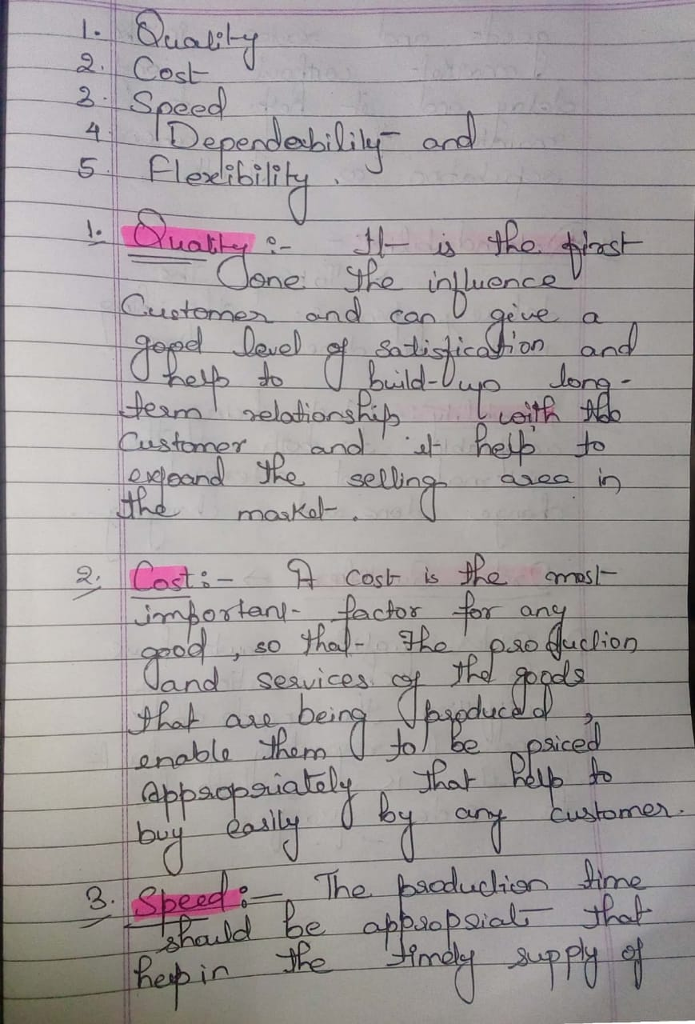 1. Quality
2. Cost
3. Speed
4 Dependability and
5. Flexibility.
1. Quality :- It is the first
one. The influence
Customer and can give a
good level of satisfication and
help to build-up long-
term relationship with the
Customer and it help to
expand the selling area in
the market.
2. Cost :- A cost is the most
important factor for any
good, so that the production
and services of the goods
that are being produced,
enable them to be priced
appropriately that help to
buy easily by any customer.
3. Speed :- The production time
should be appropriate that
help in the timely supply of